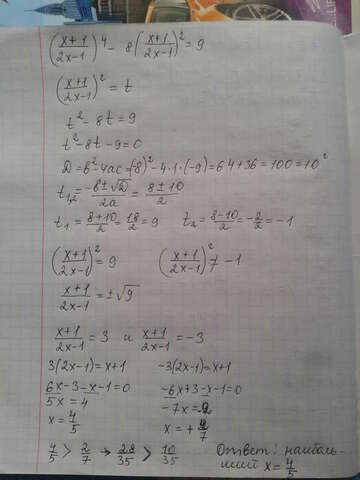 ((x+1)/(2x-1))⁴ - 8((x+1)/(2x-1))² = 9
((x+1)/(2x-1))² = t
t² - 8t = 9
t² - 8t - 9 = 0
D = b² - 4ac = (-8)² - 4·1·(-9) = 64 + 36 = 100 = 10²
t₁,₂ = (-b ± √D)/2a = (8 ± 10)/2
t₁ = (8+10)/2 = 18/2 = 9 t₂ = (8-10)/2 = -2/2 = -1
((x+1)/(2x-1))² = 9 ((x+1)/(2x-1))² ≠ -1
(x+1)/(2x-1) = ±√9
(x+1)/(2x-1) = 3 и (x+1)/(2x-1) = -3
3(2x-1) = x+1 -3(2x-1) = x+1
6x-3-x-1=0 -6x+3-x-1=0
5x = 4 -7x =
x = 4/5 x = +2/7
4/5 > 2/7 → 28/35 > 10/35 Ответ: наиболь-
ший x = 4/5